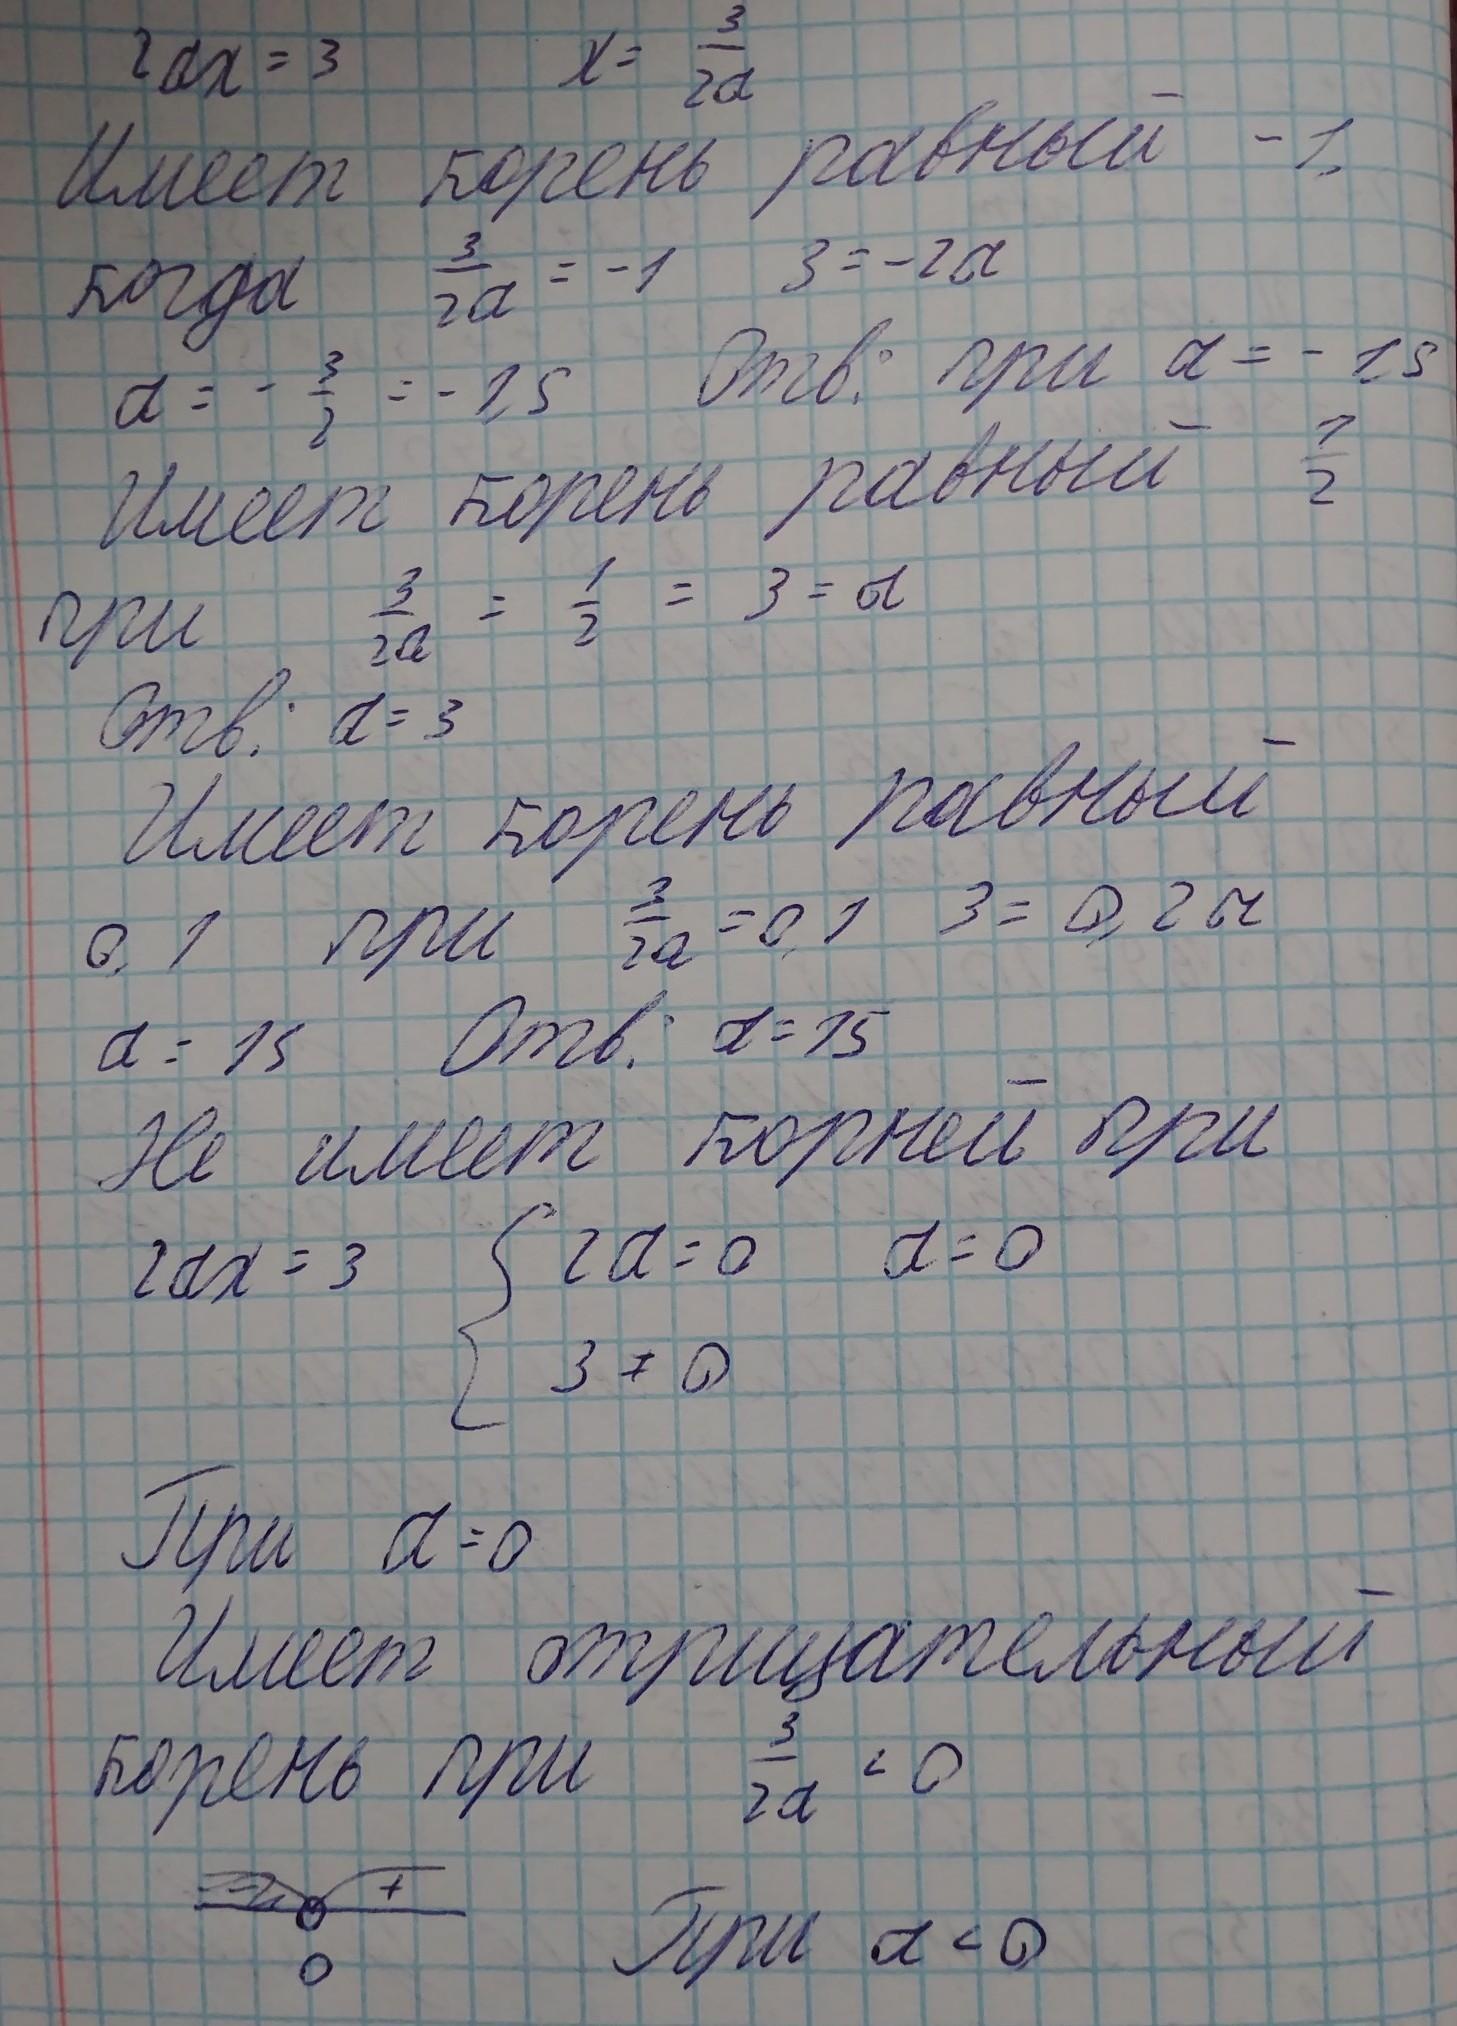 2ax = 3 x = 3/2a
Имеет корень равный -1,
когда 3/2a = -1 3 = -2a
a = - 3/2 = -1,5 Отв: при a = -1,5
Имеет корень равный 1/2
при 3/2a = 1/2 = 3 = a
Отв: a = 3
Имеет корень равный
0,1 при 3/2a = 0,1 3 = 0,2a
a = 15 Отв: a = 15
Не имеет корней при
2ax = 3 { 2a = 0 a = 0
3 ≠ 0
При a = 0
Имеет отрицательный
корень при 3/2a < 0
+
0 При a < 0